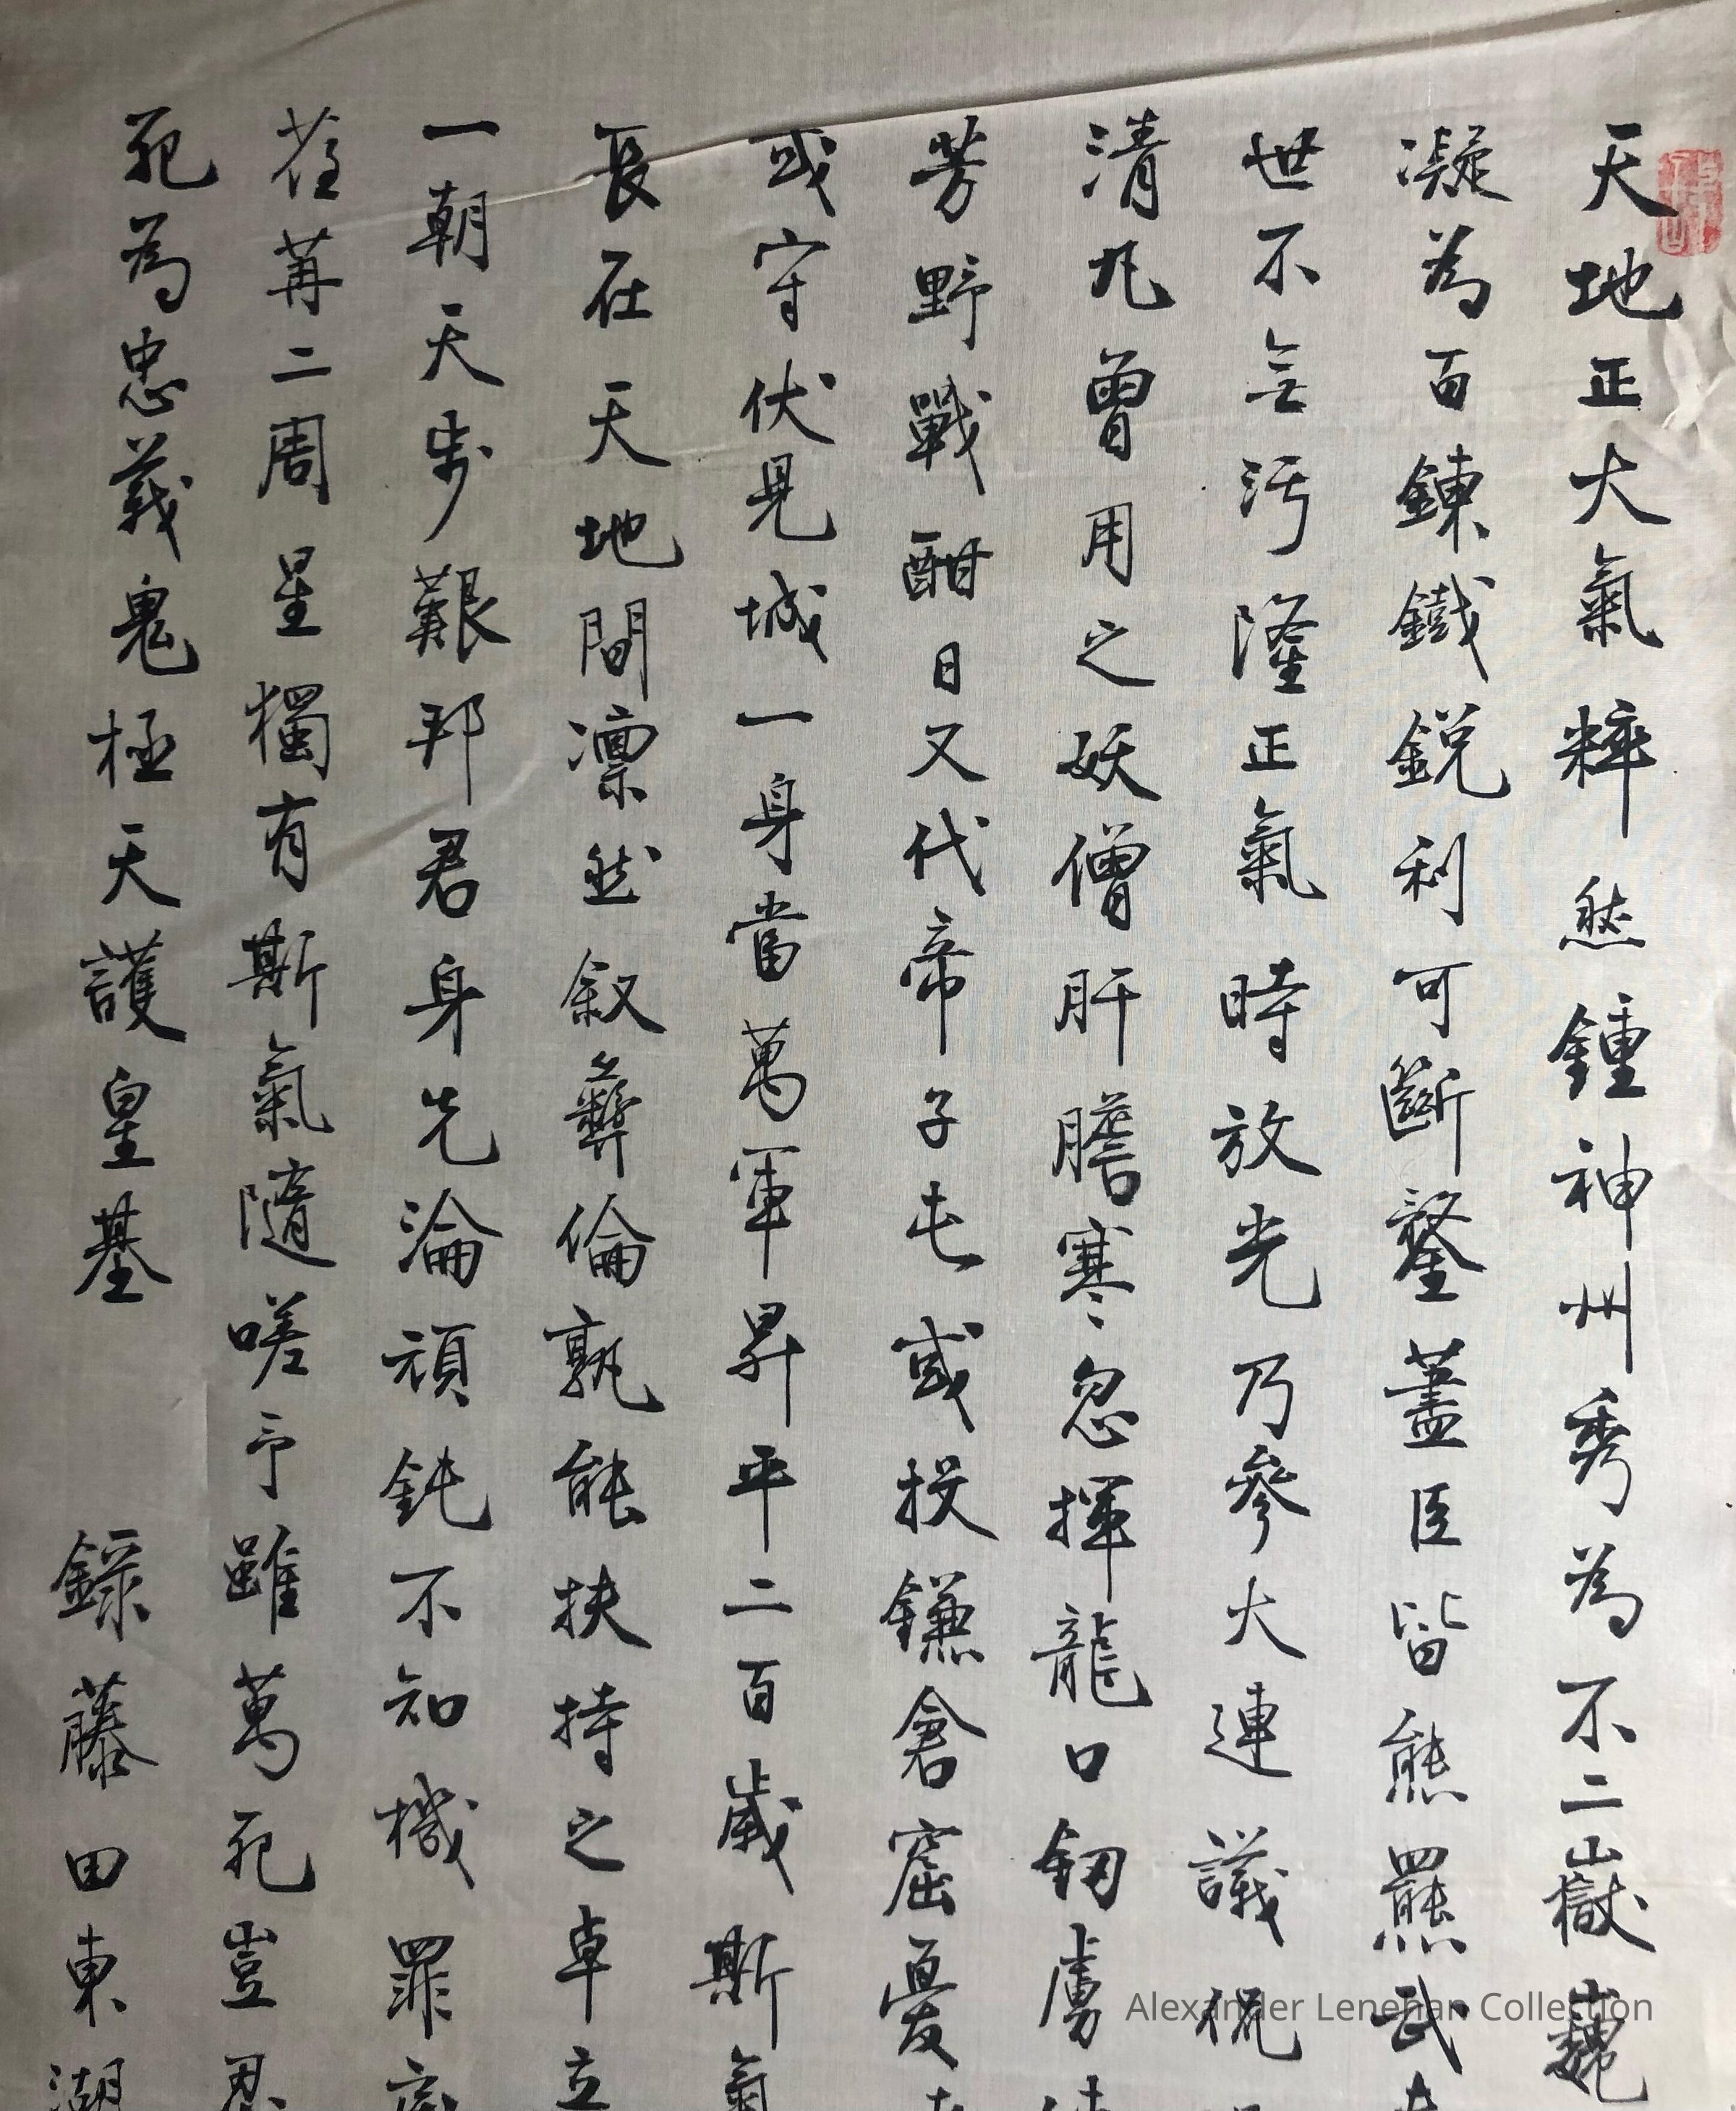 天地正大氣粹然鍾神州秀為不二嶽巍
凝為百鍊鐵銳利可斷鍪藎臣皆熊羆武
世不無污隆正氣時放光乃參大連議侃
清丸曾用之妖僧肝膽寒忽揮龍口劒虜
芳野戰酣日又代帝子屯或投鎌倉窟憂
或守伏見城一身當萬軍昇平二百歲斯氣
長在天地間凛然叙彝倫孰能扶持之卓立
一朝天步艱邦君身先淪頑鈍不知機罪
荏苒二周星獨有斯氣隨嗟予雖萬死豈忍
死為忠義鬼極天護皇基
錄藤田東湖
Alexander Lenehan Collection